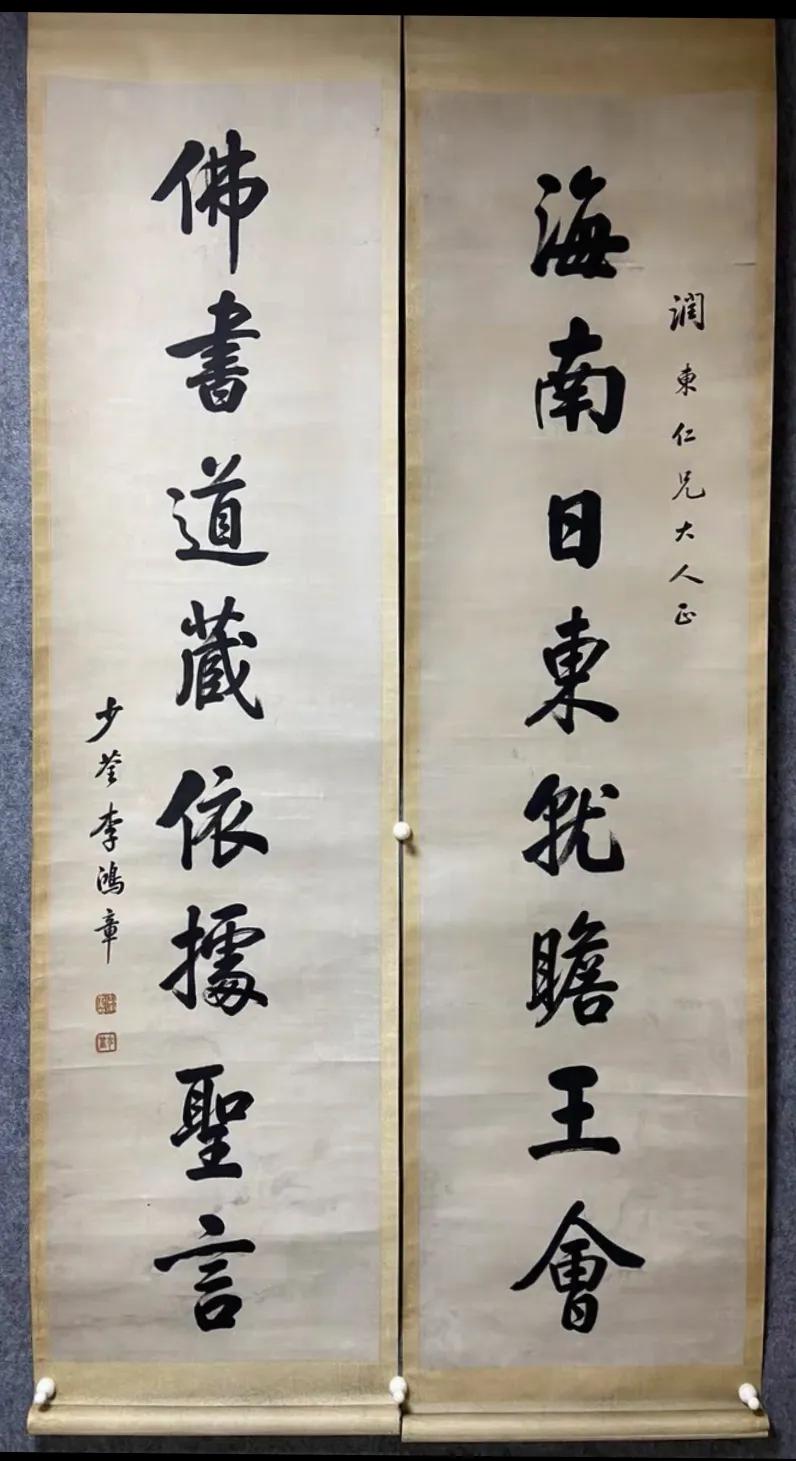 潤東仁兄大人正
海南日東就瞻王會
佛書道藏依據聖言
少荃李鴻章